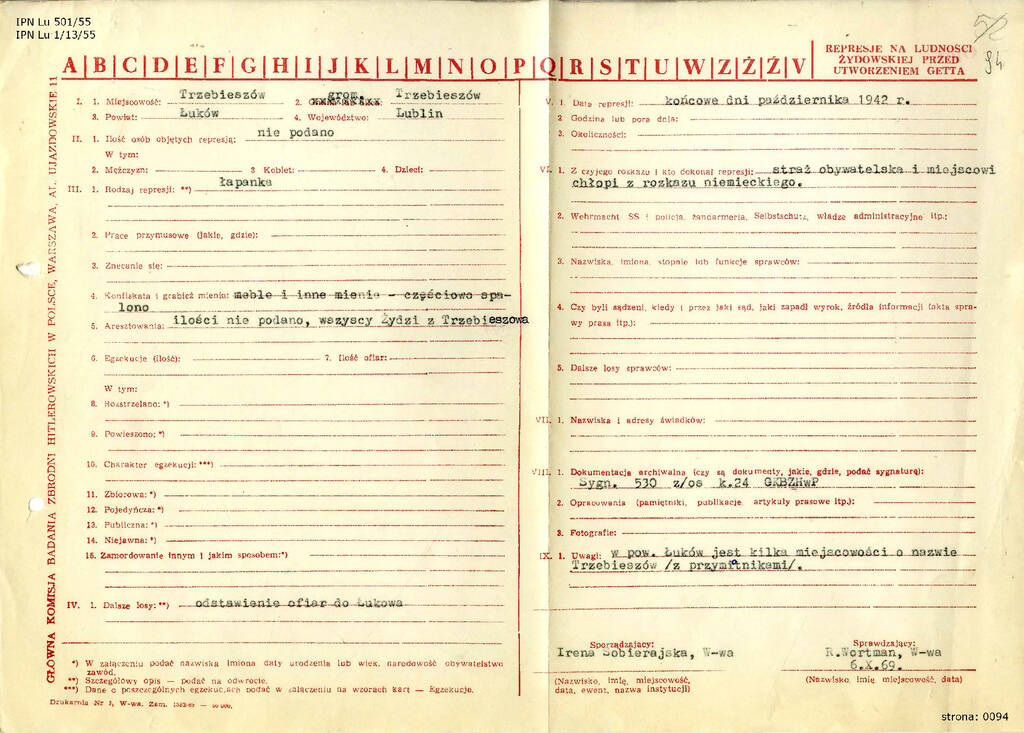 IPN Lu 501/55
IPN Lu 1/13/55
94
A|B|C|D|E|F|G|H|I|J|K|L|M|N|O|P|Q|R|S|T|U|W|Z|Ż|Ź|V
REPRESJE NA LUDNOŚCI
ŻYDOWSKIEJ PRZED
UTWORZENIEM GETTA
GŁÓWNA KOMISJA BADANIA ZBRODNI HITLEROWSKICH W POLSCE, WARSZAWA, AL. UJAZDOWSKIE 11
I. 1. Miejscowość: Trzebieszów 2. grom. Trzebieszów
3. Powiat: Łuków 4. Województwo: Lublin
II. 1. Ilość osób objętych represją: nie podano
W tym:
2. Mężczyzn: 3 Kobiet: 4. Dzieci:
III. 1. Rodzaj represji: **) łapanka
2. Prace przymusowe (jakie, gdzie):
3. Znęcanie się:
4. Konfiskata i grabież mienia: meble i inne mienie - częściowo spa-
lono
5. Aresztowania: ilości nie podano, wszyscy Żydzi z Trzebieszowa
6. Egzekucje (ilość): 7. Ilość ofiar:
W tym:
8. Rozstrzelano: *)
9. Powieszono: *)
10. Charakter egzekucji: ***)
11. Zbiorowa: *)
12. Pojedyńcza: *)
13. Publiczna: *)
14. Niejawna: *)
15. Zamordowanie innym i jakim sposobem: *)
IV. 1. Dalsze losy: **) odstawienie ofiar do Łukowa
*) W załączeniu podać nazwiska imiona daty urodzenia lub wiek, narodowość obywatelstwo
zawód.
**) Szczegółowy opis — podać na odwrocie.
***) Dane o poszczególnych egzekucjach podać w załączeniu na wzorach kart — Egzekucje.
Drukarnia Nr 1, W-wa. Zam.
V. 1. Data represji: końcowe dni października 1942 r.
2 Godzina lub pora dnia:
3. Okoliczności:
VI. 1. Z czyjego rozkazu i kto dokonał represji: straż obywatelska i miejscowi
chłopi z rozkazu niemieckiego.
2. Wehrmacht SS i policja, żandarmeria, Selbstschutz, władze administracyjne itp.:
3. Nazwiska, imiona, stopnie lub funkcje sprawców:
4. Czy byli sądzeni, kiedy i przez jaki sąd, jaki zapadł wyrok, źródła informacji (akta spra-
wy prasa itp.):
5. Dalsze losy sprawców:
VII. 1. Nazwiska i adresy świadków:
VIII. 1. Dokumentacja archiwalna (czy są dokumenty, jakie, gdzie, podać sygnaturę):
Sygn. 530 z/os k.24 GKBZHwP
2. Opracowania (pamiętniki, publikacje, artykuły prasowe itp.):
3. Fotografie:
IX. 1. Uwagi: w pow. Łuków jest kilka miejscowości o nazwie
Trzebieszów /z przymiotnikami/.
Sporządzający:
Irena Sobierajska, W-wa
(Nazwisko, imię, miejscowość,
data, ewent. nazwa instytucji)
Sprawdzający:
R.Wortman, W-wa
6.X.69.
(Nazwisko, imię, miejscowość, data)
strona: 0094